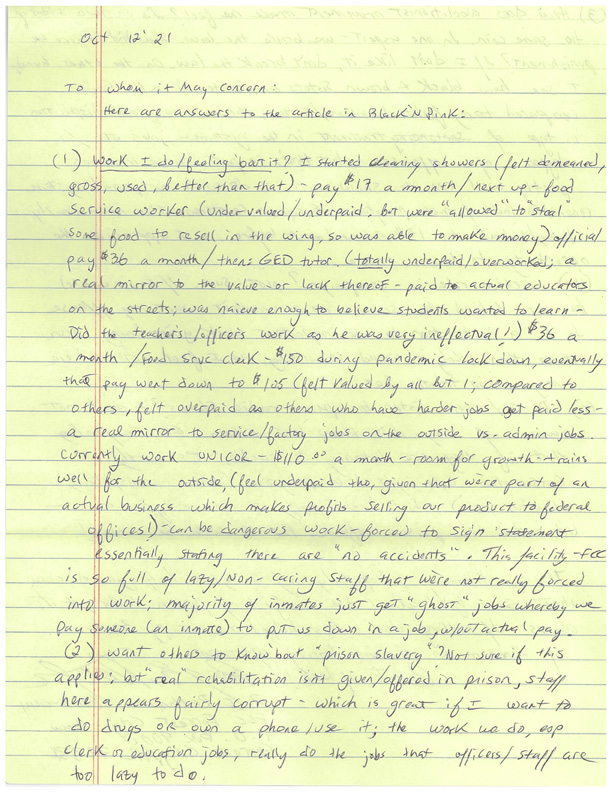 Oct 12' 21
To whom it May concern:
Here are answers to the article in Black'N Pink:
(1) Work I do/feeling 'bout it? I started cleaning showers (felt demeaned,
gross, used, better than that) - pay $17 a month/next up - food
service worker (under-valued/underpaid, but were "allowed" to "steal"
some food to resell in the wing, so was able to make money) official
pay $36 a month/then: GED tutor. (totally underpaid/overworked; a
real mirror to the value - or lack thereof - paid to actual educators
on the streets; was naieve enough to believe students wanted to learn -
Did the teacher's/officer's work as he was very ineffectual!) $36 a
month/Food Srvc clerk - $150 during pandemic lock down, eventually
that pay went down to $105 (felt valued by all but 1; compared to
others, felt overpaid as others who have harder jobs get paid less -
a real mirror to service/factory jobs on the outside vs. admin jobs.
Currently work UNICOR - $110.00 a month - room for growth - trains
well for the outside, (feel underpaid tho, given that were part of an
actual business which makes profits selling our product to federal
offices!) - can be dangerous work - forced to sign statement
essentially stating there are "no accidents". This facility - FCC
is so full of lazy/non-caring staff that were not really forced
into work; majority of inmates just get "ghost" jobs whereby we
pay someone (an inmate) to put us down in a job, w/out actual pay.
(2) want others to know 'bout "prison slavery"? Not sure if this
applies; but "real" rehabilitation isn't given/offered in prison, staff
here appears fairly corrupt - which is great if I want to
do drugs OR own a phone/use it; the work we do, esp
clerk or education jobs, really do the jobs that officers/staff are
too lazy to do.